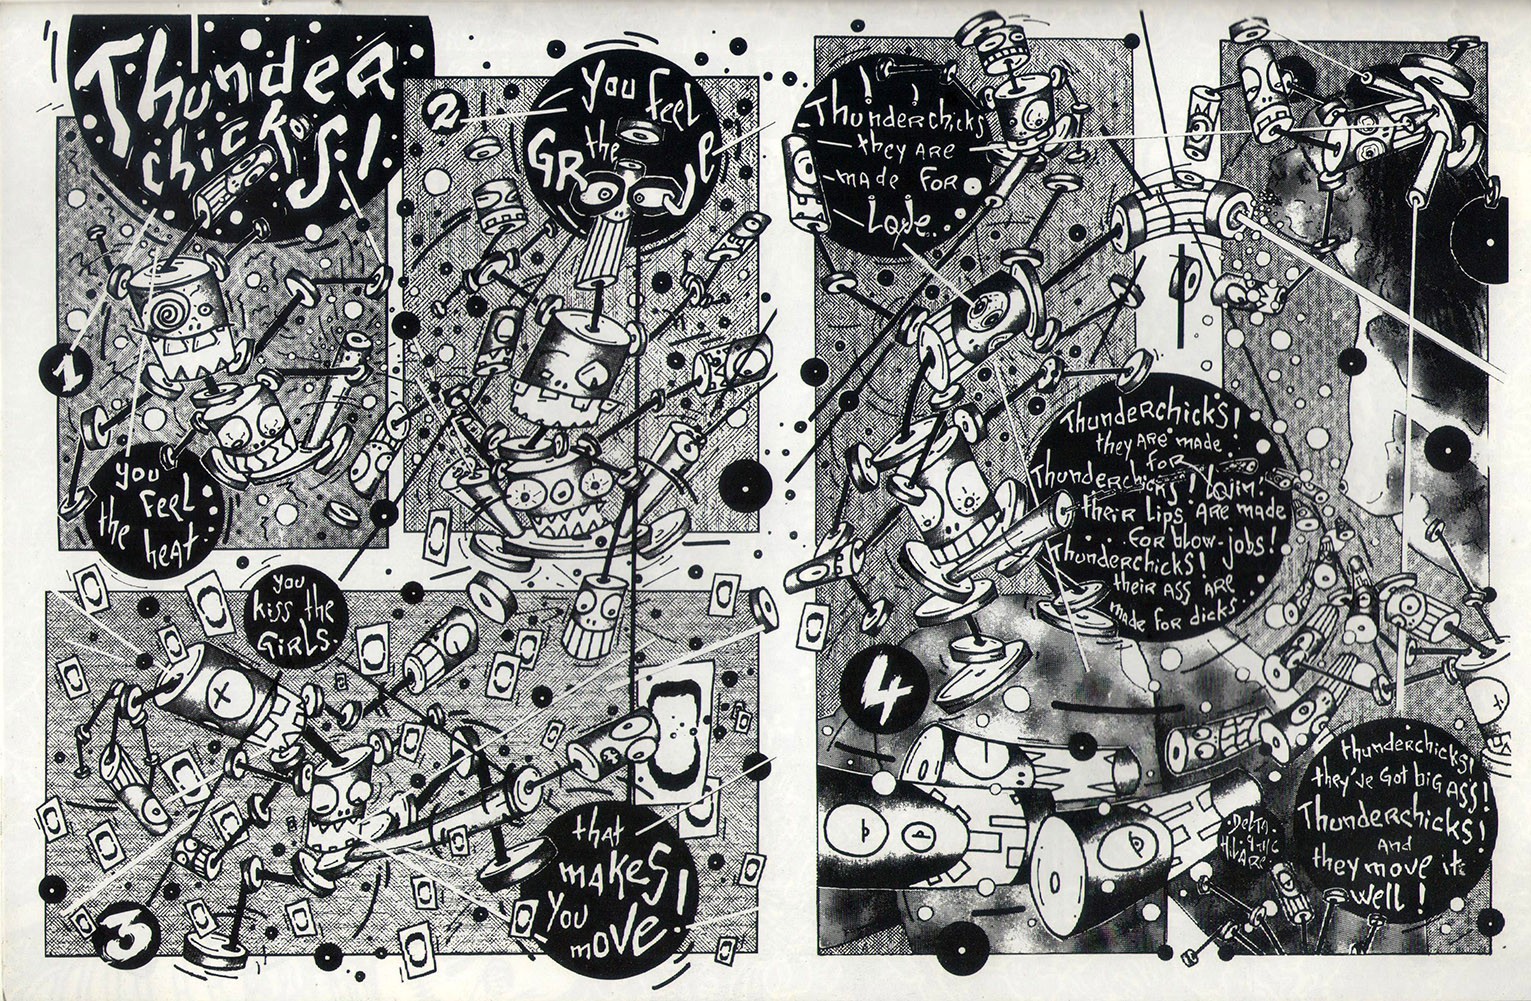 Thunder
chicks!
1
you
feel
the heat.
2
you feel
the
GROOVE
you
kiss the
GiRLS.
3
that
makes
you
move!
Thunderchicks
they are
made for
Love.
4
Thunderchicks!
they are made
for
Thunderchicks!
their lips are made
for blow-jobs!
Thunderchicks!
their ass are
made for dicks.
thunderchicks!
they've got big ass!
Thunderchicks!
and
they move it
well!
DELTA